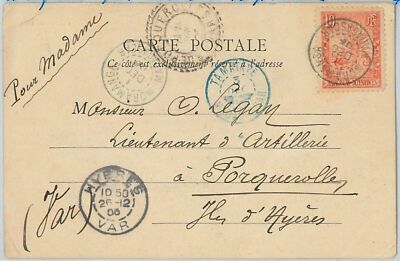 CARTE POSTALE
Ce côté est exclusivement réservé à l'adresse
Pour Madame
Monsieur O. Legan
Lieutenant d'Artillerie
à Porquerolles
(Var)
Iles d'Hyères
HYERES
10 50
26-12
05
VAR
TAMATAVE
10